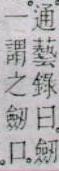 通藝錄曰劒
一謂之劒口。